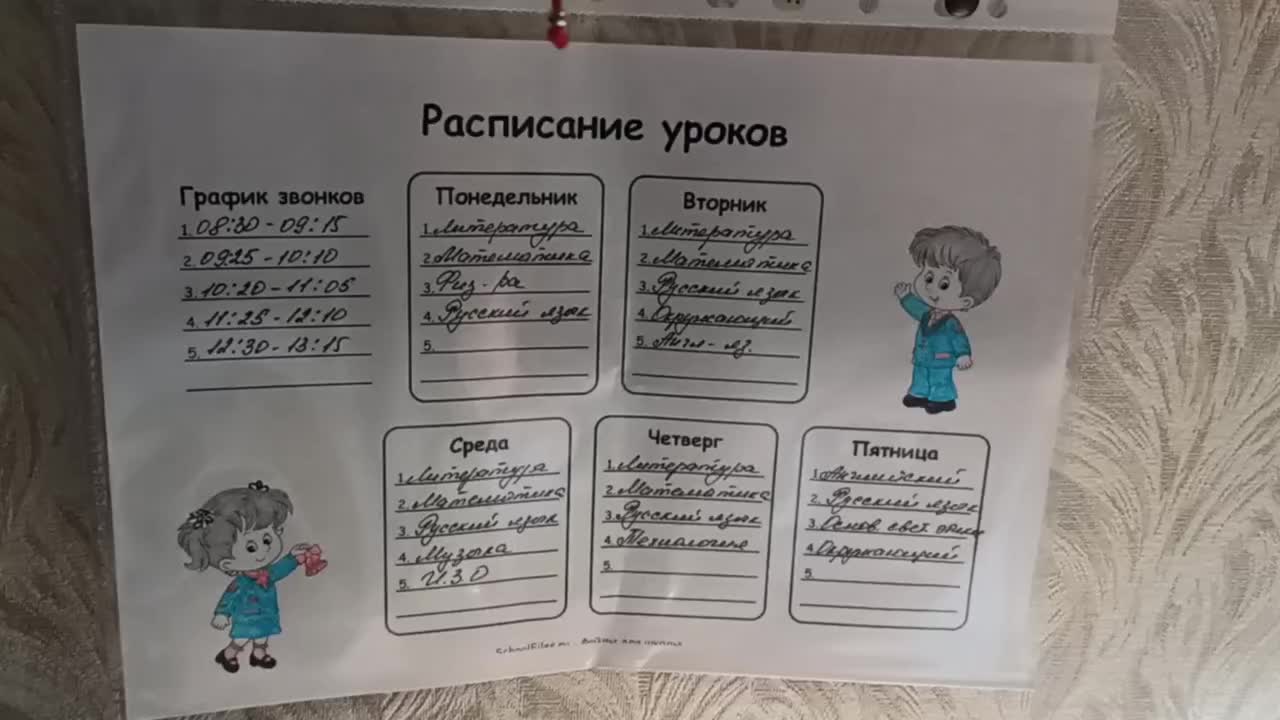 Расписание уроков
График звонков
1. 08:30 - 09:15
2. 09:25 - 10:10
3. 10:20 - 11:05
4. 11:25 - 12:10
5. 12:30 - 13:15
Понедельник
1. Литература
2. Математика
3. Физ-ра
4. Русский язык
5.
Вторник
1. Литература
2. Математика
3. Русский язык
4. Окружающий
5. Англ-яз.
Среда
1. Литература
2. Математика
3. Русский язык
4. Музыка
5. ИЗО
Четверг
1. Литература
2. Математика
3. Русский язык
4. Технология
5.
Пятница
1. Английский
2. Русский язык
3. Основ. свет.
4. Окружающий
5.